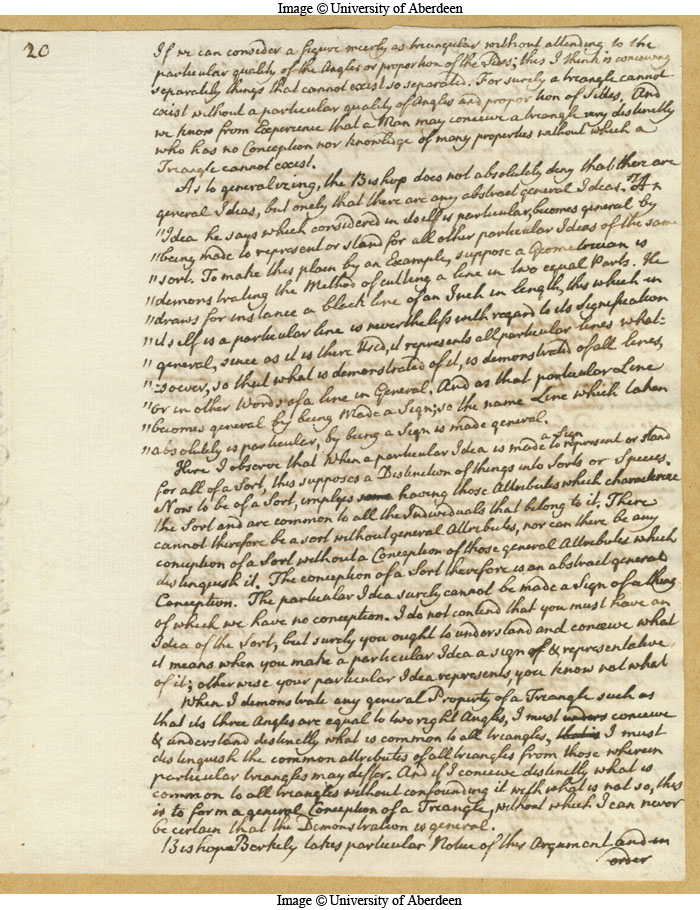 Image © University of Aberdeen
20
If we can consider a figure meerly as triangular without attending to the
particular quality of the Angles or proportion of the Sides; this I think is conceiving
separately things that cannot exist so separated. For surely a triangle cannot
exist without a particular quality of Angles and proportion of Sides, And
we know from Experience that a Man may conceive a triangle very distinctly
who has no Conception nor knowledge of many properties without which a
Triangle cannot exist.
As to generalizing, the Bishop does not absolutely deny that there are
general Ideas, but onely that there are any abstract general Ideas. "An
"Idea he says which considered in itself is particular, becomes general by
"being made to represent or stand for all other particular Ideas of the same
"sort. To make this plain by an Example, suppose a Geometrician is
"demonstrating the Method of cutting a line in two equal Parts. He
"draws for instance a black line of an Inch in length, this which in
"itself is a particular line is nevertheless with regard to its signification
"general, since as it is there Used, it represents all particular lines what-
"soever, so that what is demonstrated of it, is demonstrated of all lines,
"or in other Words of a line in General. And as that particular Line
"becomes general by being Made a Sign; so the name Line which taken
"absolutely is particular, by being a Sign is made general.
Here I observe that When a particular Idea is made a Sign to represent or stand
for all of a Sort, this supposes a Distinction of things into Sorts or Species.
Now to be of a Sort, implys having those Attributes which characterize
the Sort and are common to all the Individuals that belong to it. There
cannot therefore be a sort without general Attributes, nor can there be any
conception of a Sort without a Conception of those general Attributes which
distinguish it. The conception of a Sort therefore is an abstract general
Conception. The particular Idea surely cannot be made a Sign of a thing
of which we have no conception. I do not contend that you must have an
Idea of the Sort, but surely you ought to understand and conceive what
it means when you make a particular Idea a sign of & representative
of it; otherwise your particular Idea represents, you know not what
When I demonstrate any general Property of a Triangle such as
that its three Angles are equal to two right Angles, I must unders conceive
& understand distinctly what is common to all triangles, that is I must
distinguish the common attributes of all triangles from those wherein
particular triangles may differ. And if I conceive distinctly what is
common to all triangles without confounding it with what is not so, this
is to form a general Conception of a Triangle, without which I can never
be certain that the Demonstration is general.
Bishop Berkely takes particular Notice of this Argument and in
order
Image © University of Aberdeen